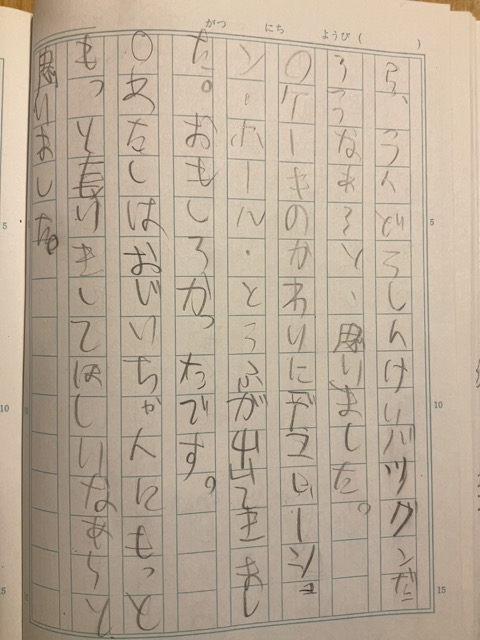 がつ にち ようび( )
ら、うんどうしんけいバツグンだ
ろうなあうと、思いました。
〇ケーキのかわりにデコレーショ
ン・ホール・とうふが出てきまし
た。おもしろかったです。
〇わたしはおじいちゃんにもっと
もっと長いきしてほしいなあうと、
思いました。
5
10
15
5
5